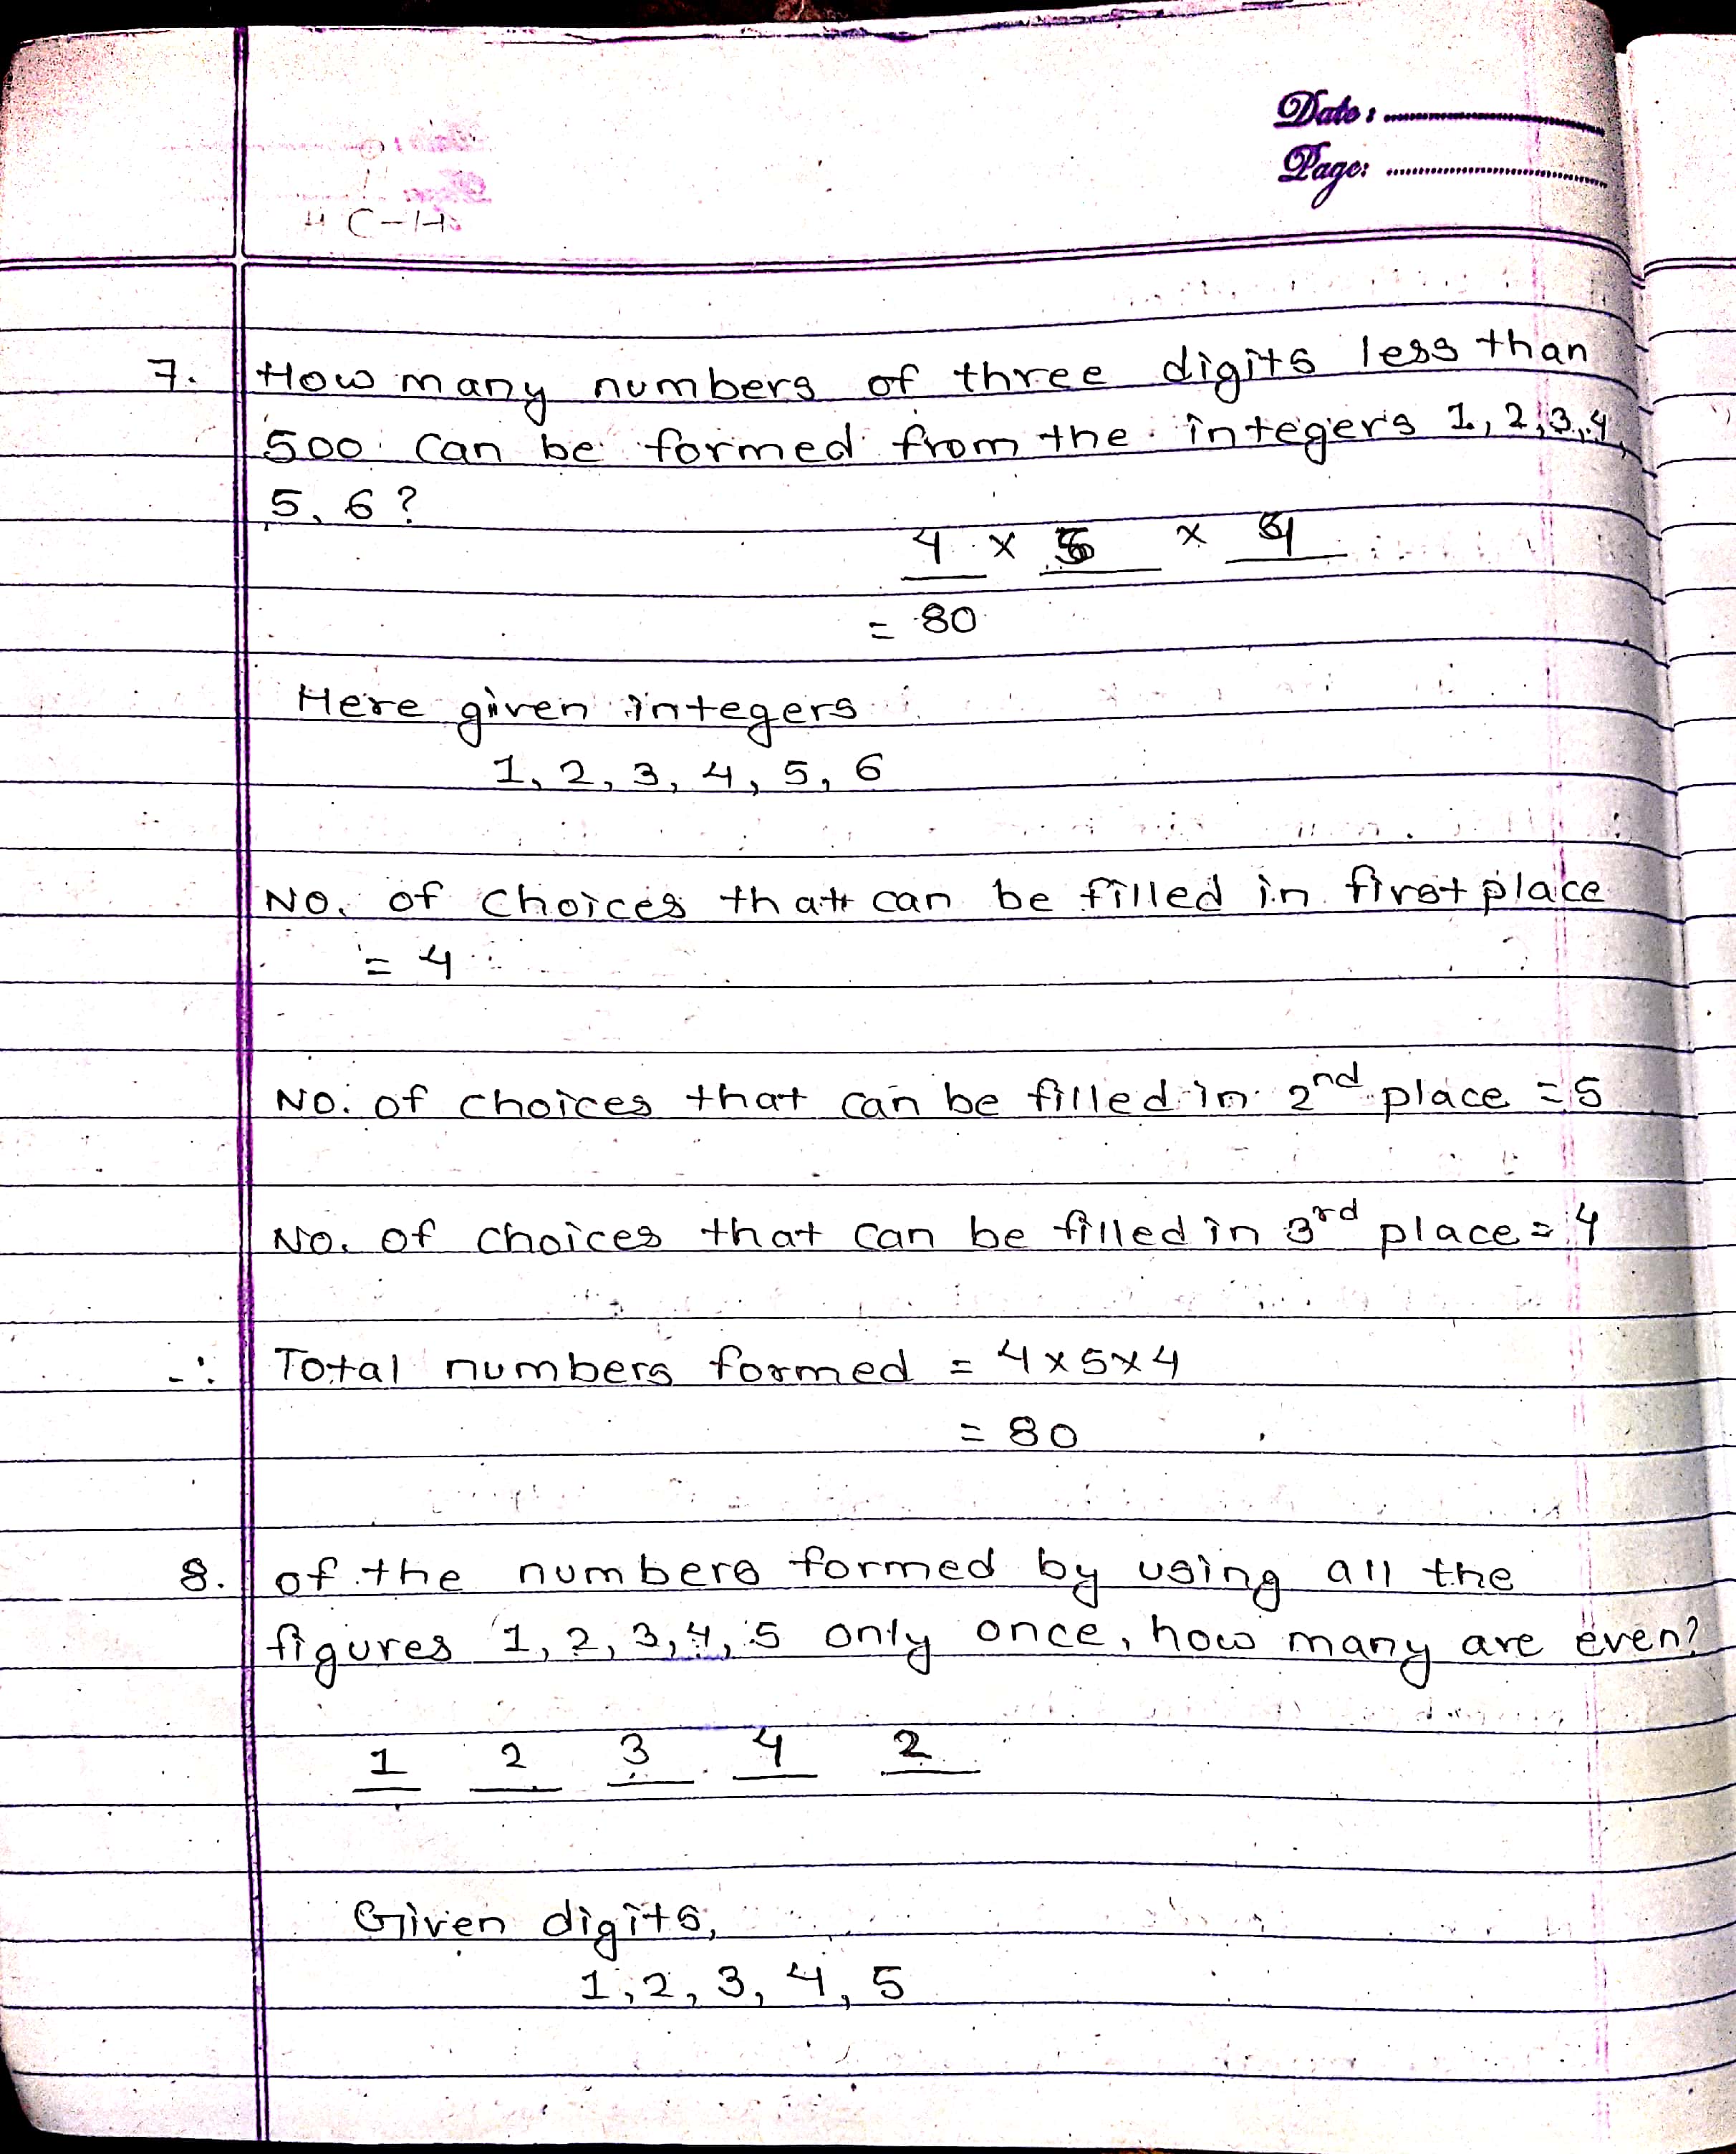 Date:
Page:
7. How many numbers of three digits less than
500 can be formed from the integers 1, 2, 3, 4,
5, 6?
4 × 5 × 4
= 80
Here given integers
1, 2, 3, 4, 5, 6
No. of choices that can be filled in first place
= 4
No. of choices that can be filled in 2nd place = 5
No. of choices that can be filled in 3rd place = 4
∴ Total numbers formed = 4×5×4
= 80
8. of the numbers formed by using all the
figures 1, 2, 3, 4, 5 only once, how many are even?
1 2 3 4 2
Given digits,
1, 2, 3, 4, 5